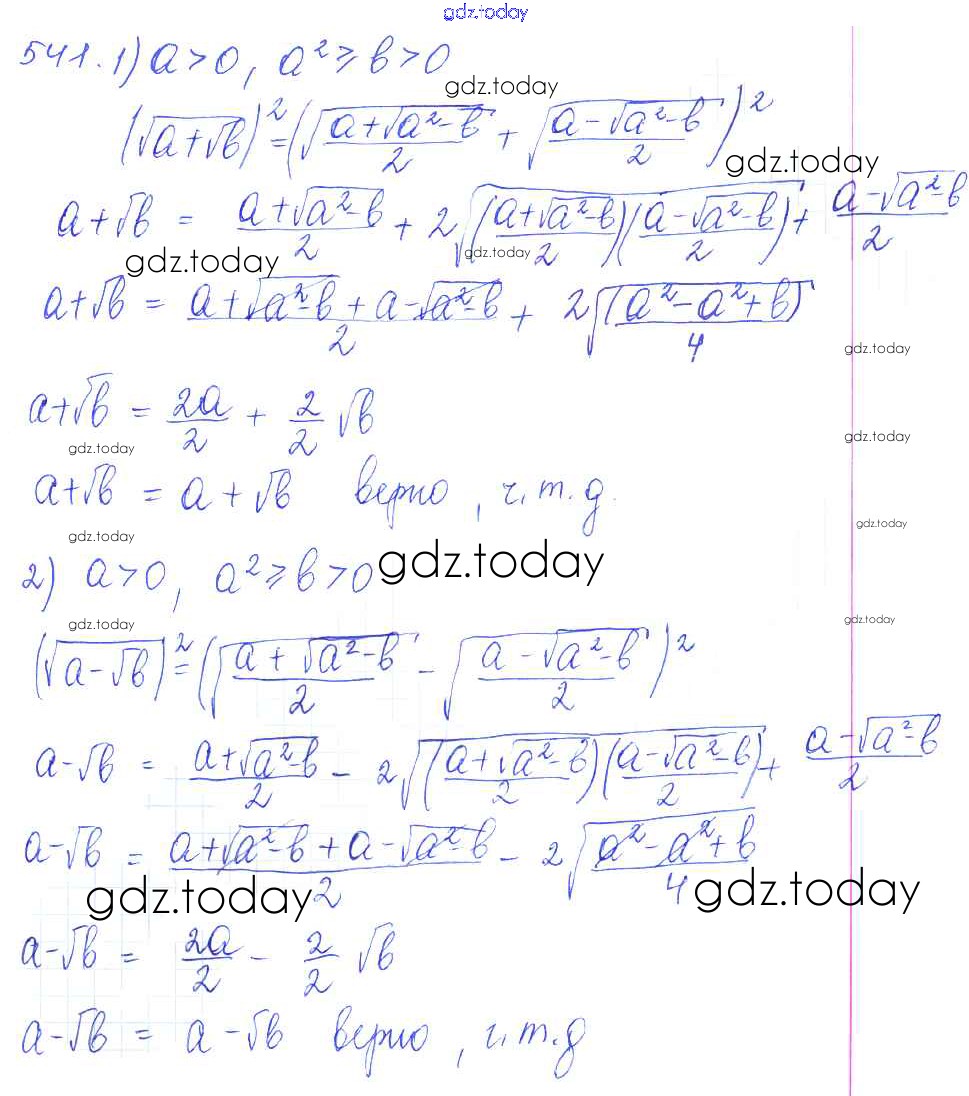 gdz.today
541. 1) a>0, a²⩾b>0
gdz.today
(√(a+√b))² = (√((a+√(a²-b))/2) + √((a-√(a²-b))/2))²
gdz.today
a+√b = (a+√(a²-b))/2 + 2√(((a+√(a²-b))/2)((a-√(a²-b))/2)) + (a-√(a²-b))/2
gdz.today
gdz.today
a+√b = (a+√(a²-b)+a-√(a²-b))/2 + 2√((a²-a²+b)/4)
gdz.today
a+√b = 2a/2 + 2/2 √b
gdz.today
gdz.today
a+√b = a+√b верно, ч.т.д.
gdz.today
gdz.today
2) a>0, a²⩾b>0
gdz.today
gdz.today
gdz.today
(√(a-√b))² = (√((a+√(a²-b))/2) - √((a-√(a²-b))/2))²
a-√b = (a+√(a²-b))/2 - 2√(((a+√(a²-b))/2)((a-√(a²-b))/2)) + (a-√(a²-b))/2
a-√b = (a+√(a²-b)+a-√(a²-b))/2 - 2√((a²-a²+b)/4)
gdz.today
gdz.today
a-√b = 2a/2 - 2/2 √b
a-√b = a-√b верно, ч.т.д